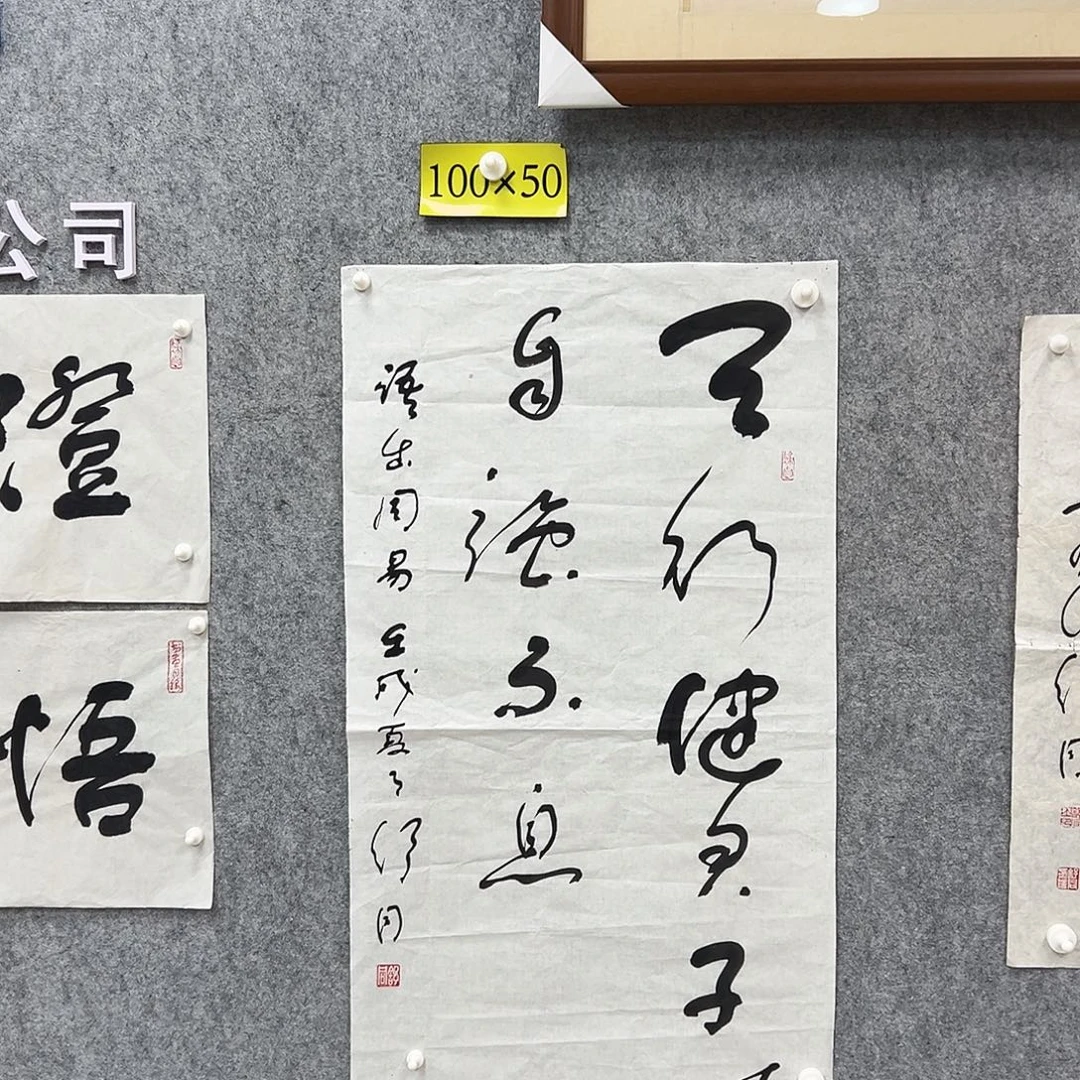 100×50
公司
天行健君子
自强不息
语出周易壬戌夏月舒同
澄
悟
舒同